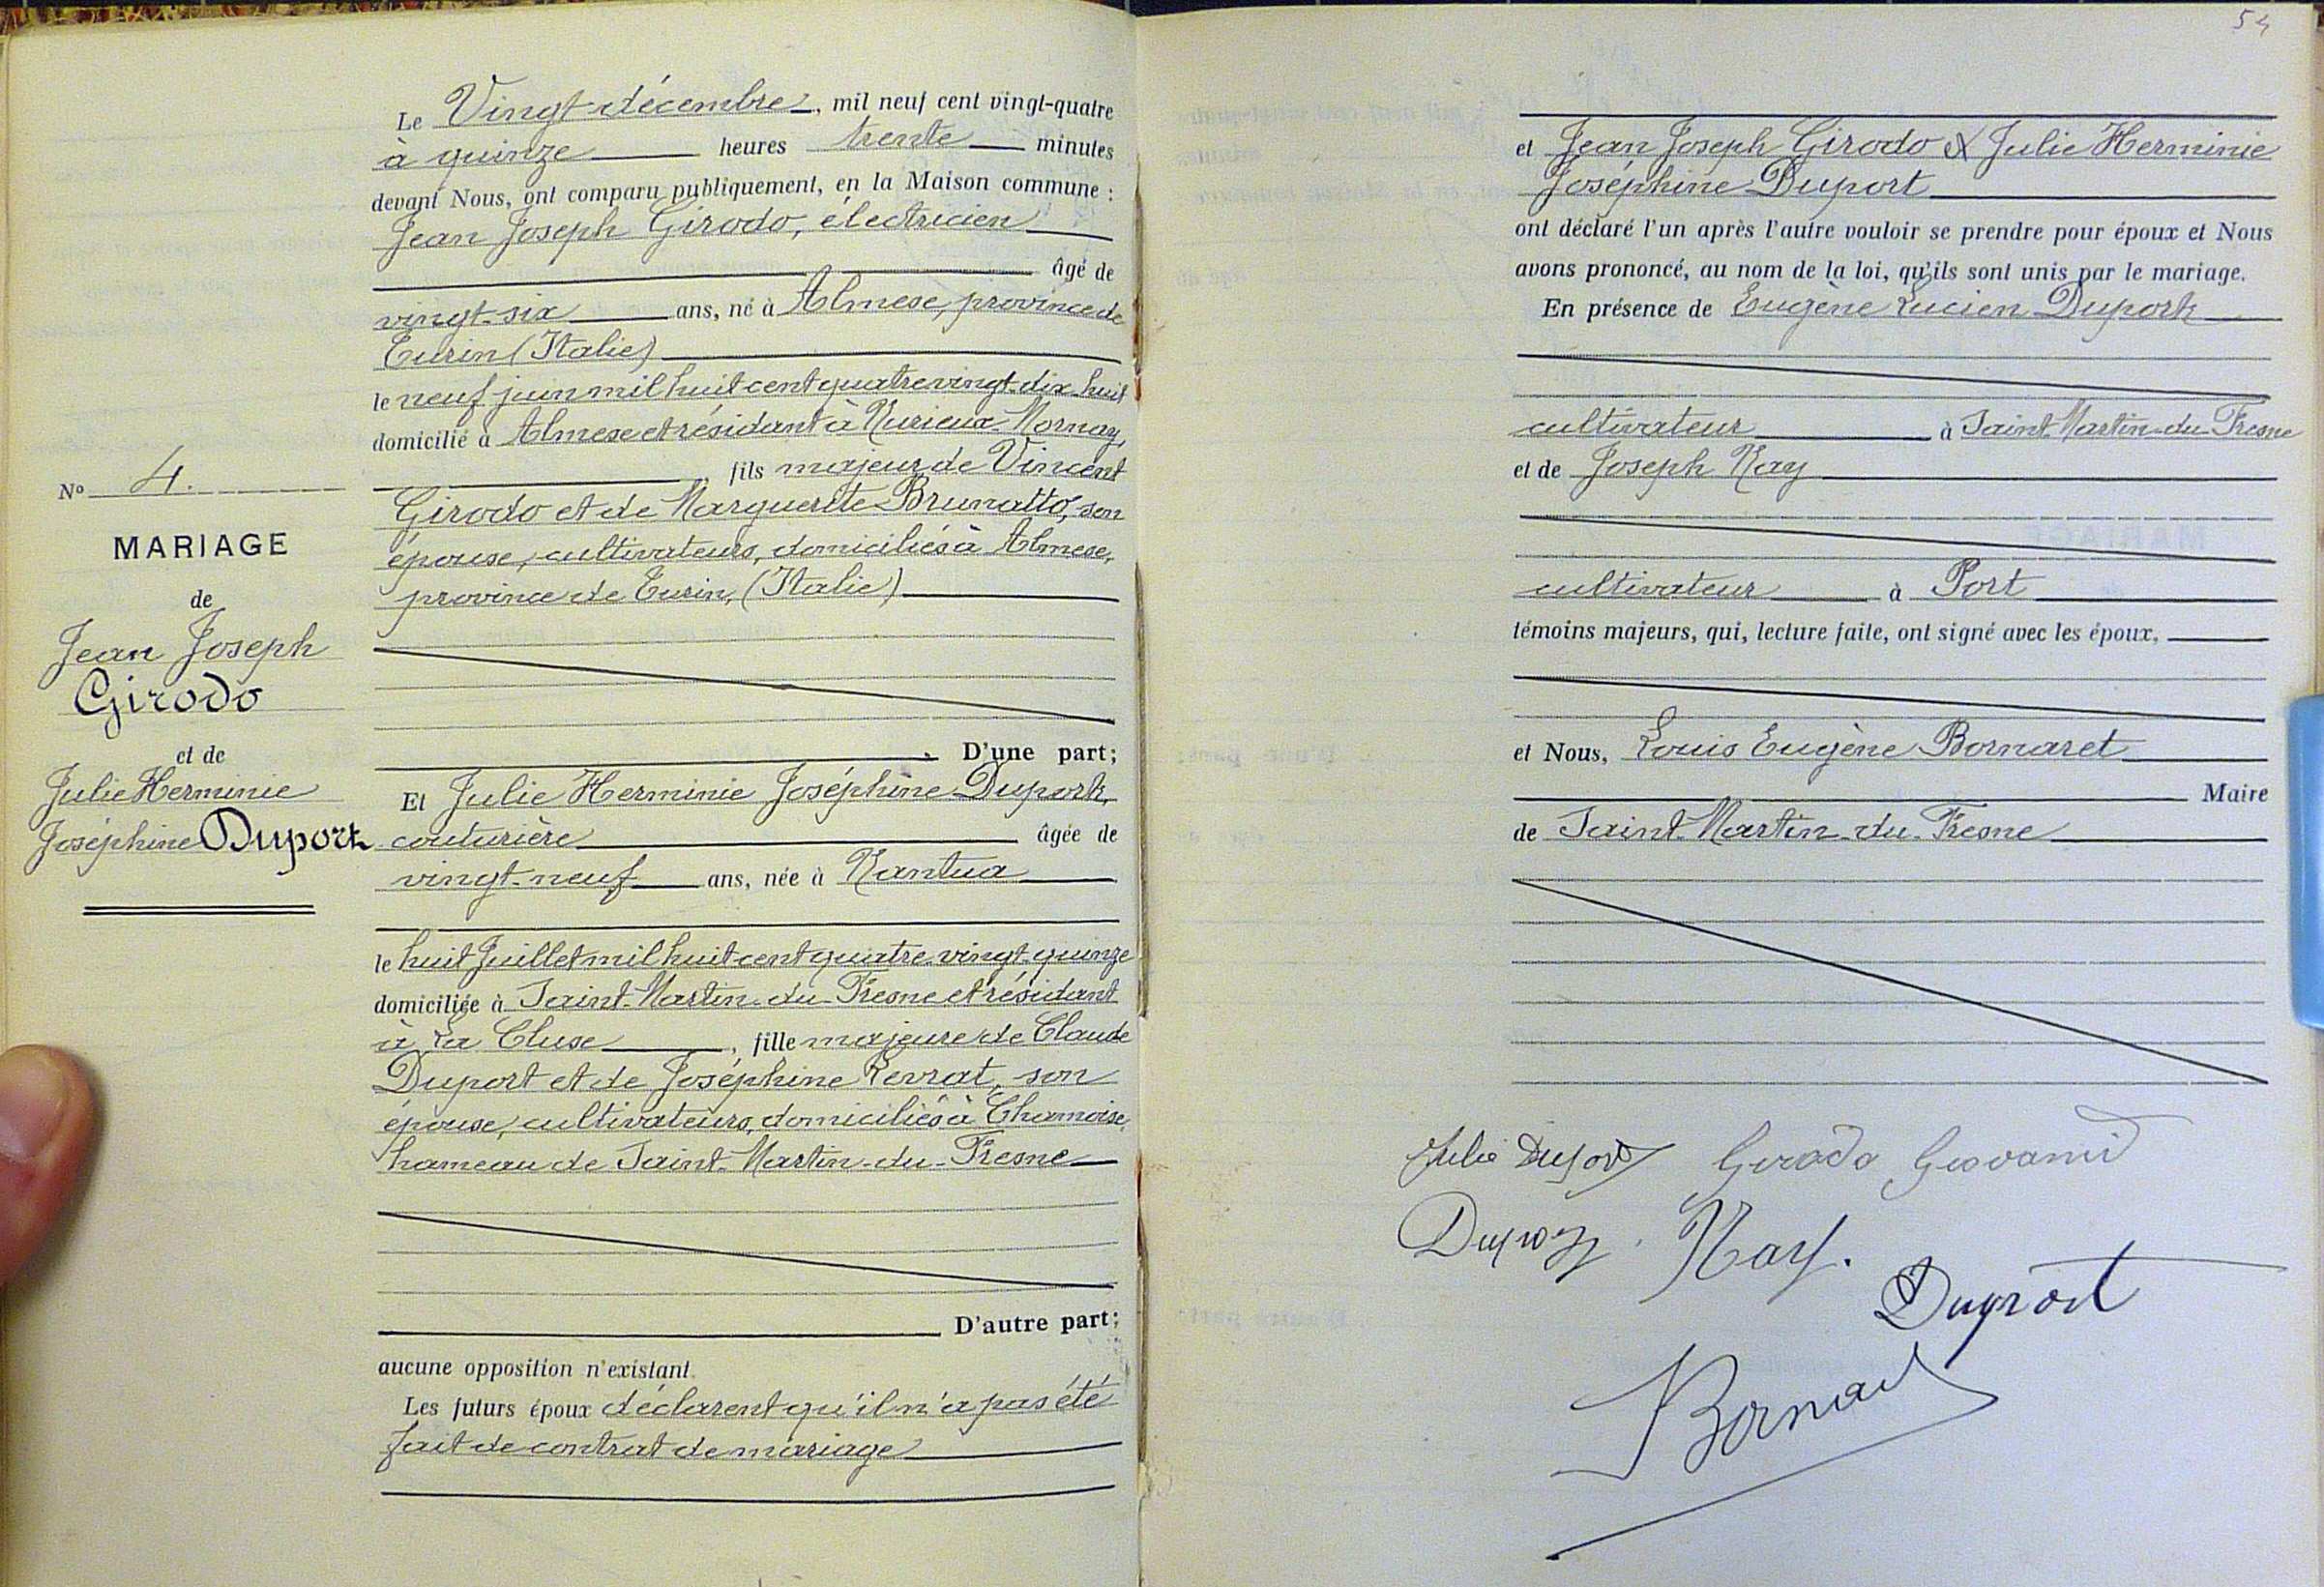 Nº 4.
MARIAGE
de
Jean Joseph
Girodo
et de
Julie Herminie
Joséphine Duport
Le Vingt décembre, mil neuf cent vingt-quatre
à quinze heures trente minutes
devant Nous, ont comparu publiquement, en la Maison commune :
Jean Joseph Girodo, électricien
âgé de
vingt-six ans, né à Almese, province de
Turin (Italie)
le neuf juin mil huit cent quatre vingt-dix huit
domicilié à Almese et résidant à Nurieux-Mornay,
, fils majeur de Vincent
Girodo et de Marguerite Brunatto, son
épouse, cultivateurs, domiciliés à Almese,
province de Turin, (Italie)
D'une part;
Et Julie Herminie Joséphine Duport,
couturière âgée de
vingt-neuf ans, née à Nantua
le huit Juillet mil huit cent quatre-vingt-quinze
domiciliée à Saint-Martin-du-Fresne et résidant
à La Cluse, fille majeure de Claude
Duport et de Joséphine Levrat, son
épouse, cultivateurs, domiciliés à Chamoise,
hameau de Saint-Martin-du-Fresne
D'autre part;
aucune opposition n'existant.
Les futurs époux déclarent qu'il n'a pas été
fait de contrat de mariage
54
et Jean Joseph Girodo & Julie Herminie
Joséphine Duport
ont déclaré l'un après l'autre vouloir se prendre pour époux et Nous
avons prononcé, au nom de la loi, qu'ils sont unis par le mariage.
En présence de Eugène Lucien Duport
cultivateur à Saint-Martin-du-Fresne
et de Joseph Nay
cultivateur à Port
témoins majeurs, qui, lecture faite, ont signé avec les époux,
et Nous, Louis Eugène Bornaret
Maire
de Saint-Martin-du-Fresne
Julie Duport Girodo Giovanni
Duport Nay.
Duport
Bornaret